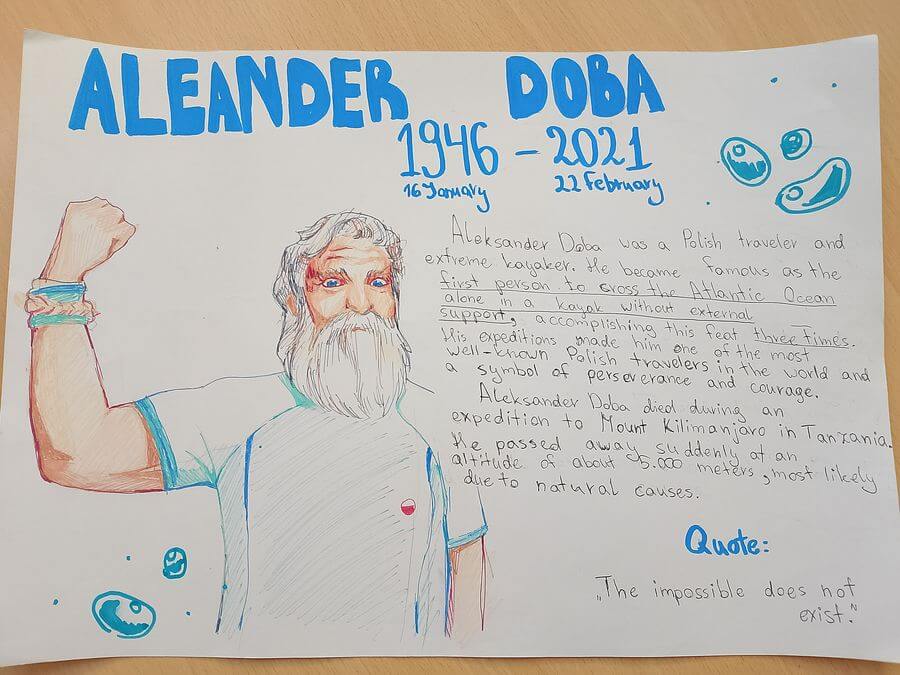 ALEANDER DOBA
1946 - 2021
16 January 22 February
Aleksander Doba was a Polish traveler and
extreme kayaker. He became famous as the
first person to cross the Atlantic Ocean
alone in a kayak without external
support, accomplishing this feat three times.
His expeditions made him one of the most
well-known Polish travelers in the world and
a symbol of perseverance and courage.
Aleksander Doba died during an
expedition to Mount Kilimanjaro in Tanzania.
He passed away suddenly at an
altitude of about 5.000 meters, most likely
due to natural causes.
Quote:
„The impossible does not
exist."